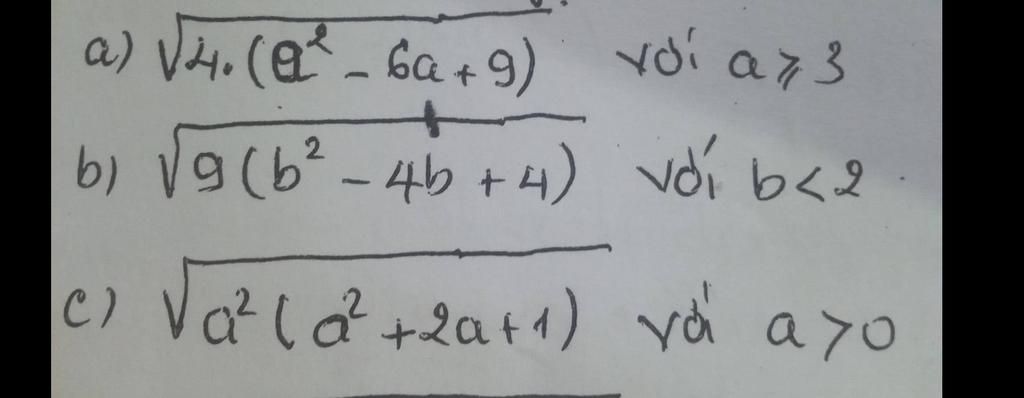 a) √4.(a² - 6a + 9) với a ⩾ 3
b) √9(b² - 4b + 4) với b < 2
c) √a²(a² + 2a + 1) với a > 0